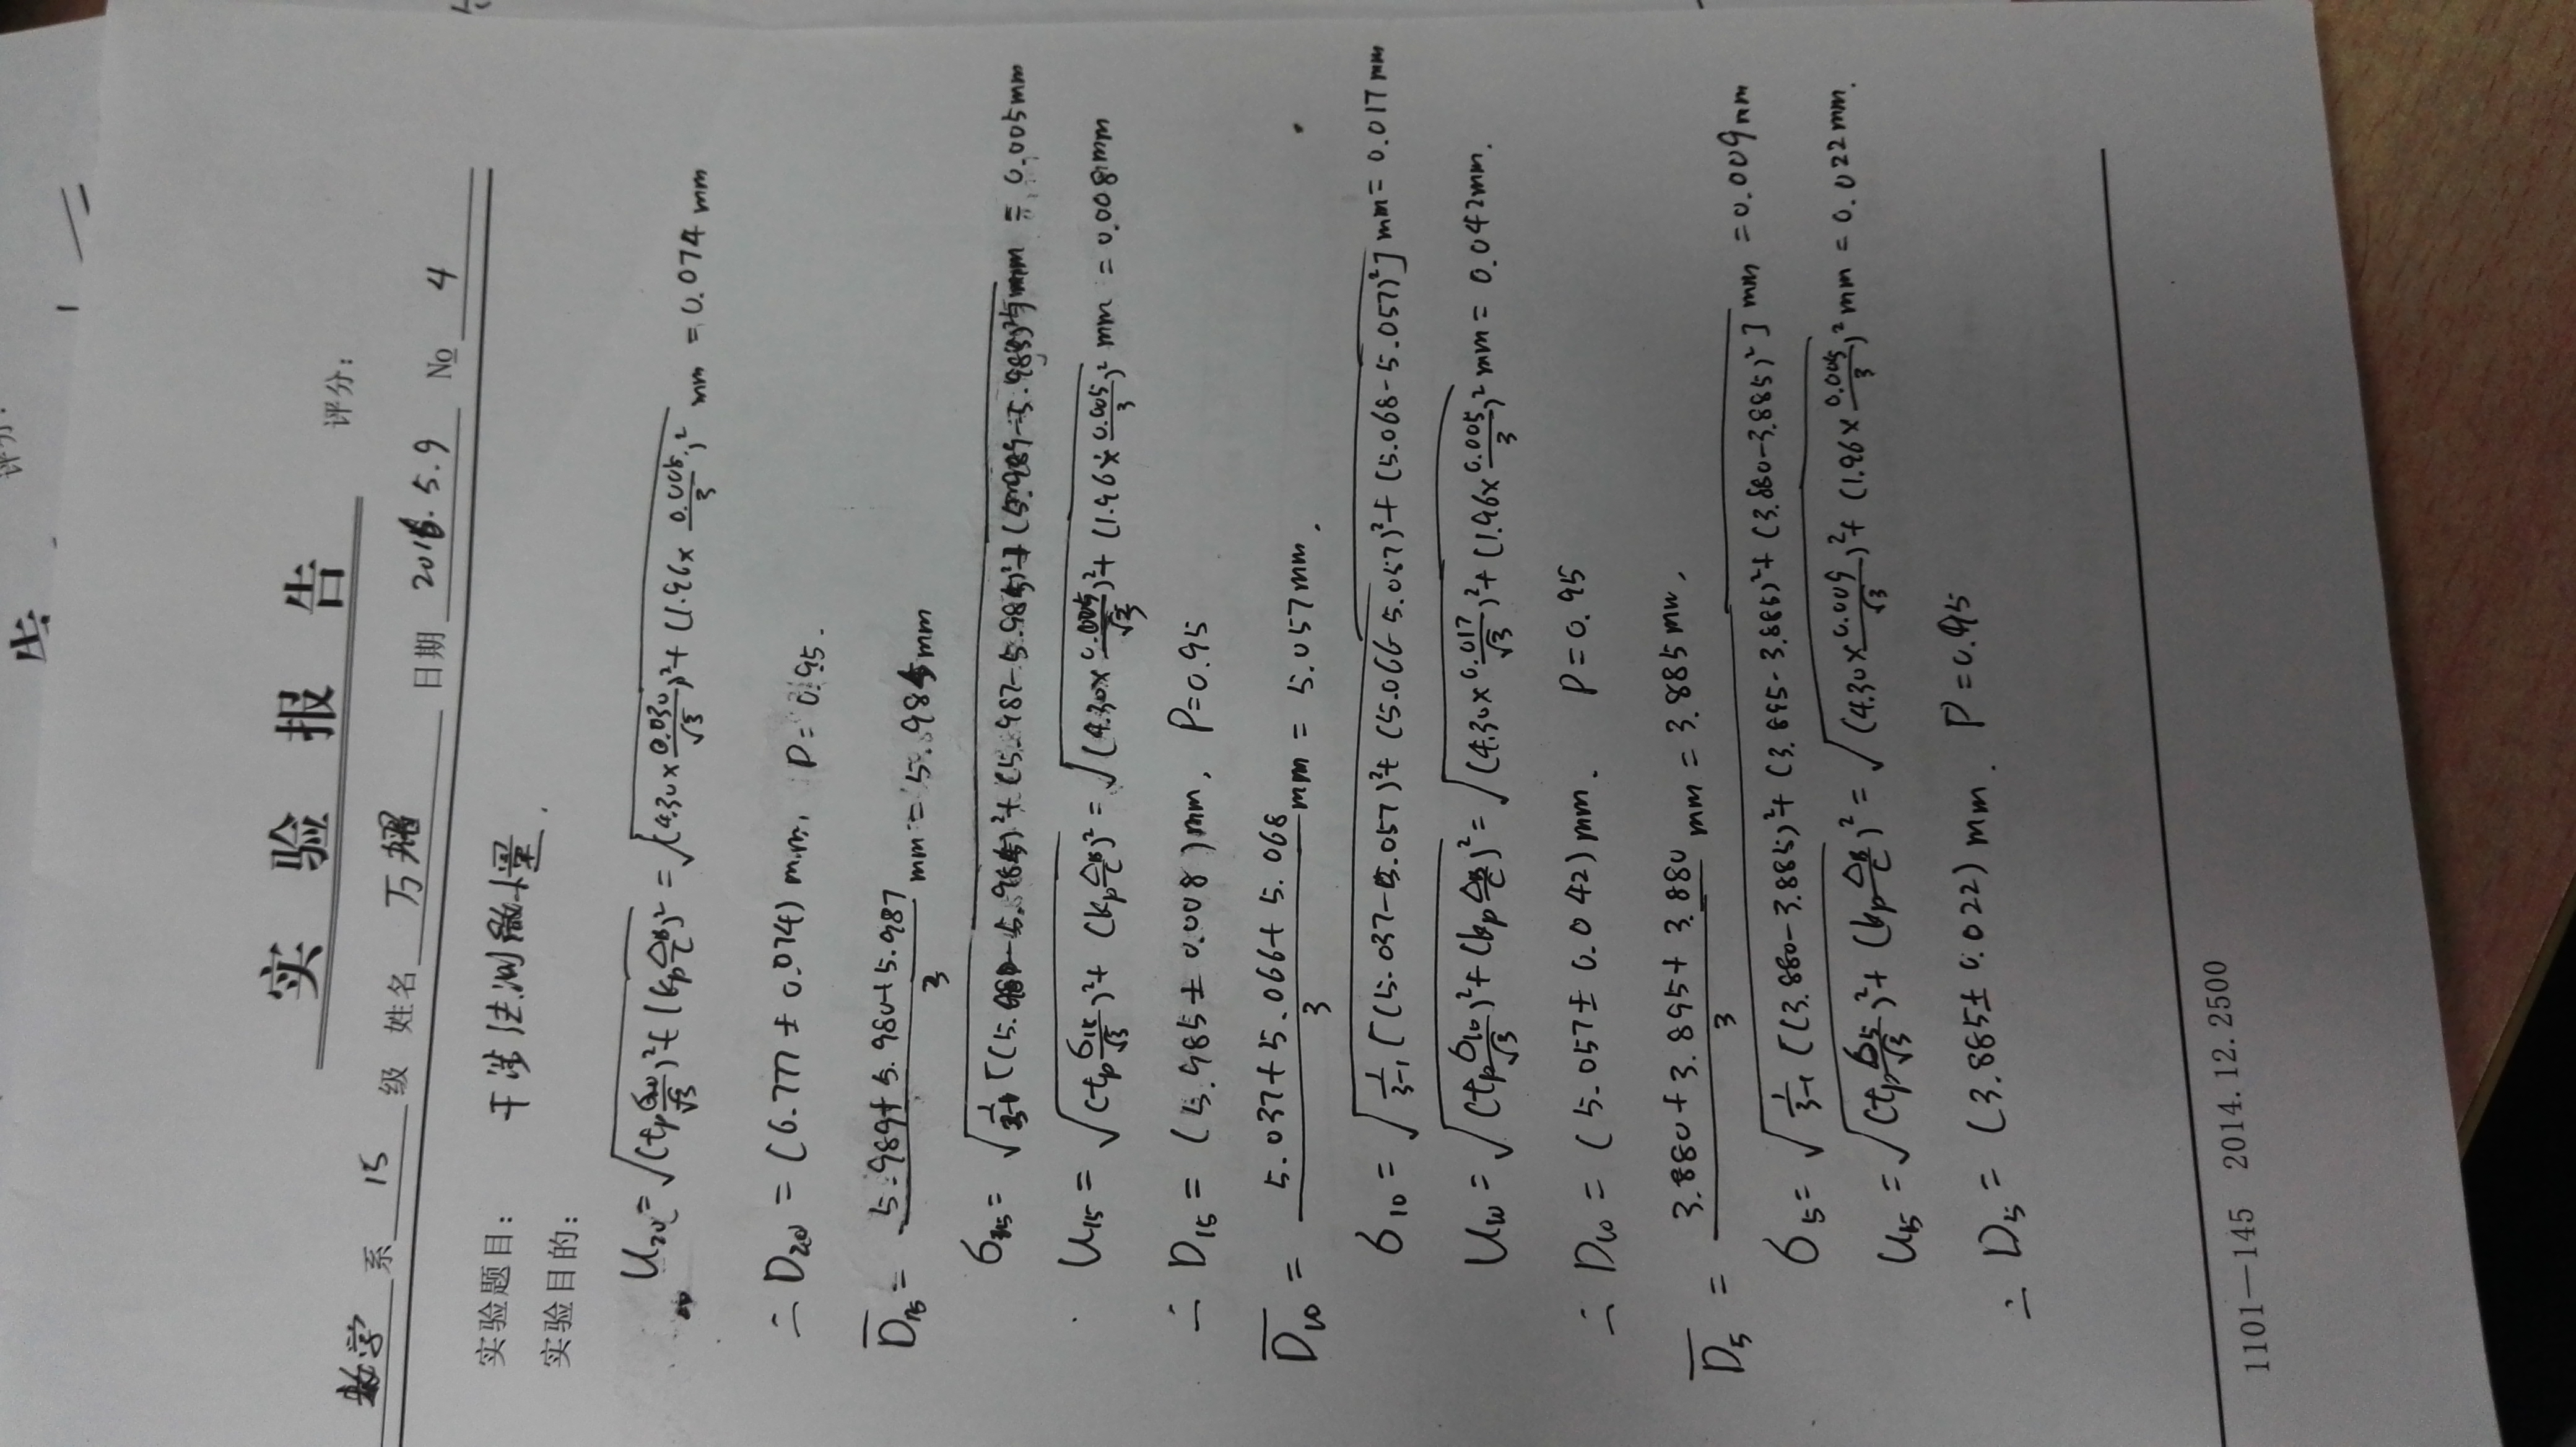 实 验 报 告
评分:
数学 系 15 级 姓名 万 日期 2016.5.9 No 4
实验题目: 干涉法测微小量.
实验目的:
U₂₀ = √((tₚ σ₂₀/√3)² + (kₚ Δ_B/C)²) = √((4.30×0.030/√3)² + (1.96×0.005/3)²) mm = 0.074 mm
∴ D₂₀ = (6.777 ± 0.074) mm, P = 0.95.
D̄₁₅ = (5.989 + 5.980 + 5.987)/3 mm = 5.985 mm
σ₁₅ = √(1/(3-1) [(5.980-5.985)² + (5.987-5.985)² + (5.989-5.985)²]) mm = 0.005mm
U₁₅ = √((tₚ σ₁₅/√3)² + (kₚ Δ_B/C)²) = √((4.30×0.005/√3)² + (1.96×0.005/3)²) mm = 0.008mm
∴ D₁₅ = (5.985 ± 0.008) mm, P=0.95
D̄₁₀ = (5.037 + 5.066 + 5.068)/3 mm = 5.057mm.
σ₁₀ = √(1/(3-1) [(5.037-5.057)² + (5.066-5.057)² + (5.068-5.057)²]) mm = 0.017mm
U₁₀ = √((tₚ σ₁₀/√3)² + (kₚ Δ_B/C)²) = √((4.30×0.017/√3)² + (1.96×0.005/3)²) mm = 0.042mm.
∴ D₁₀ = (5.057 ± 0.042) mm. P=0.95
D̄₅ = (3.880 + 3.895 + 3.880)/3 mm = 3.885mm,
σ₅ = √(1/(3-1) [(3.880-3.885)² + (3.895-3.885)² + (3.880-3.885)²]) mm = 0.009mm
U₅ = √((tₚ σ₅/√3)² + (kₚ Δ_B/C)²) = √((4.30×0.009/√3)² + (1.96×0.005/3)²) mm = 0.022mm.
∴ D₅ = (3.885 ± 0.022) mm. P=0.95
1101—145 2014.12.2500